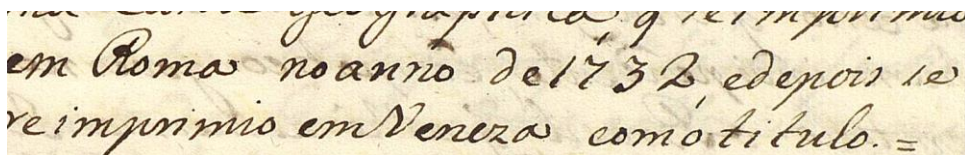 Geographica, q̃ se imprimio
em Roma no anno de 1732, e depois se
reimprimio em Veneza com o titulo. =